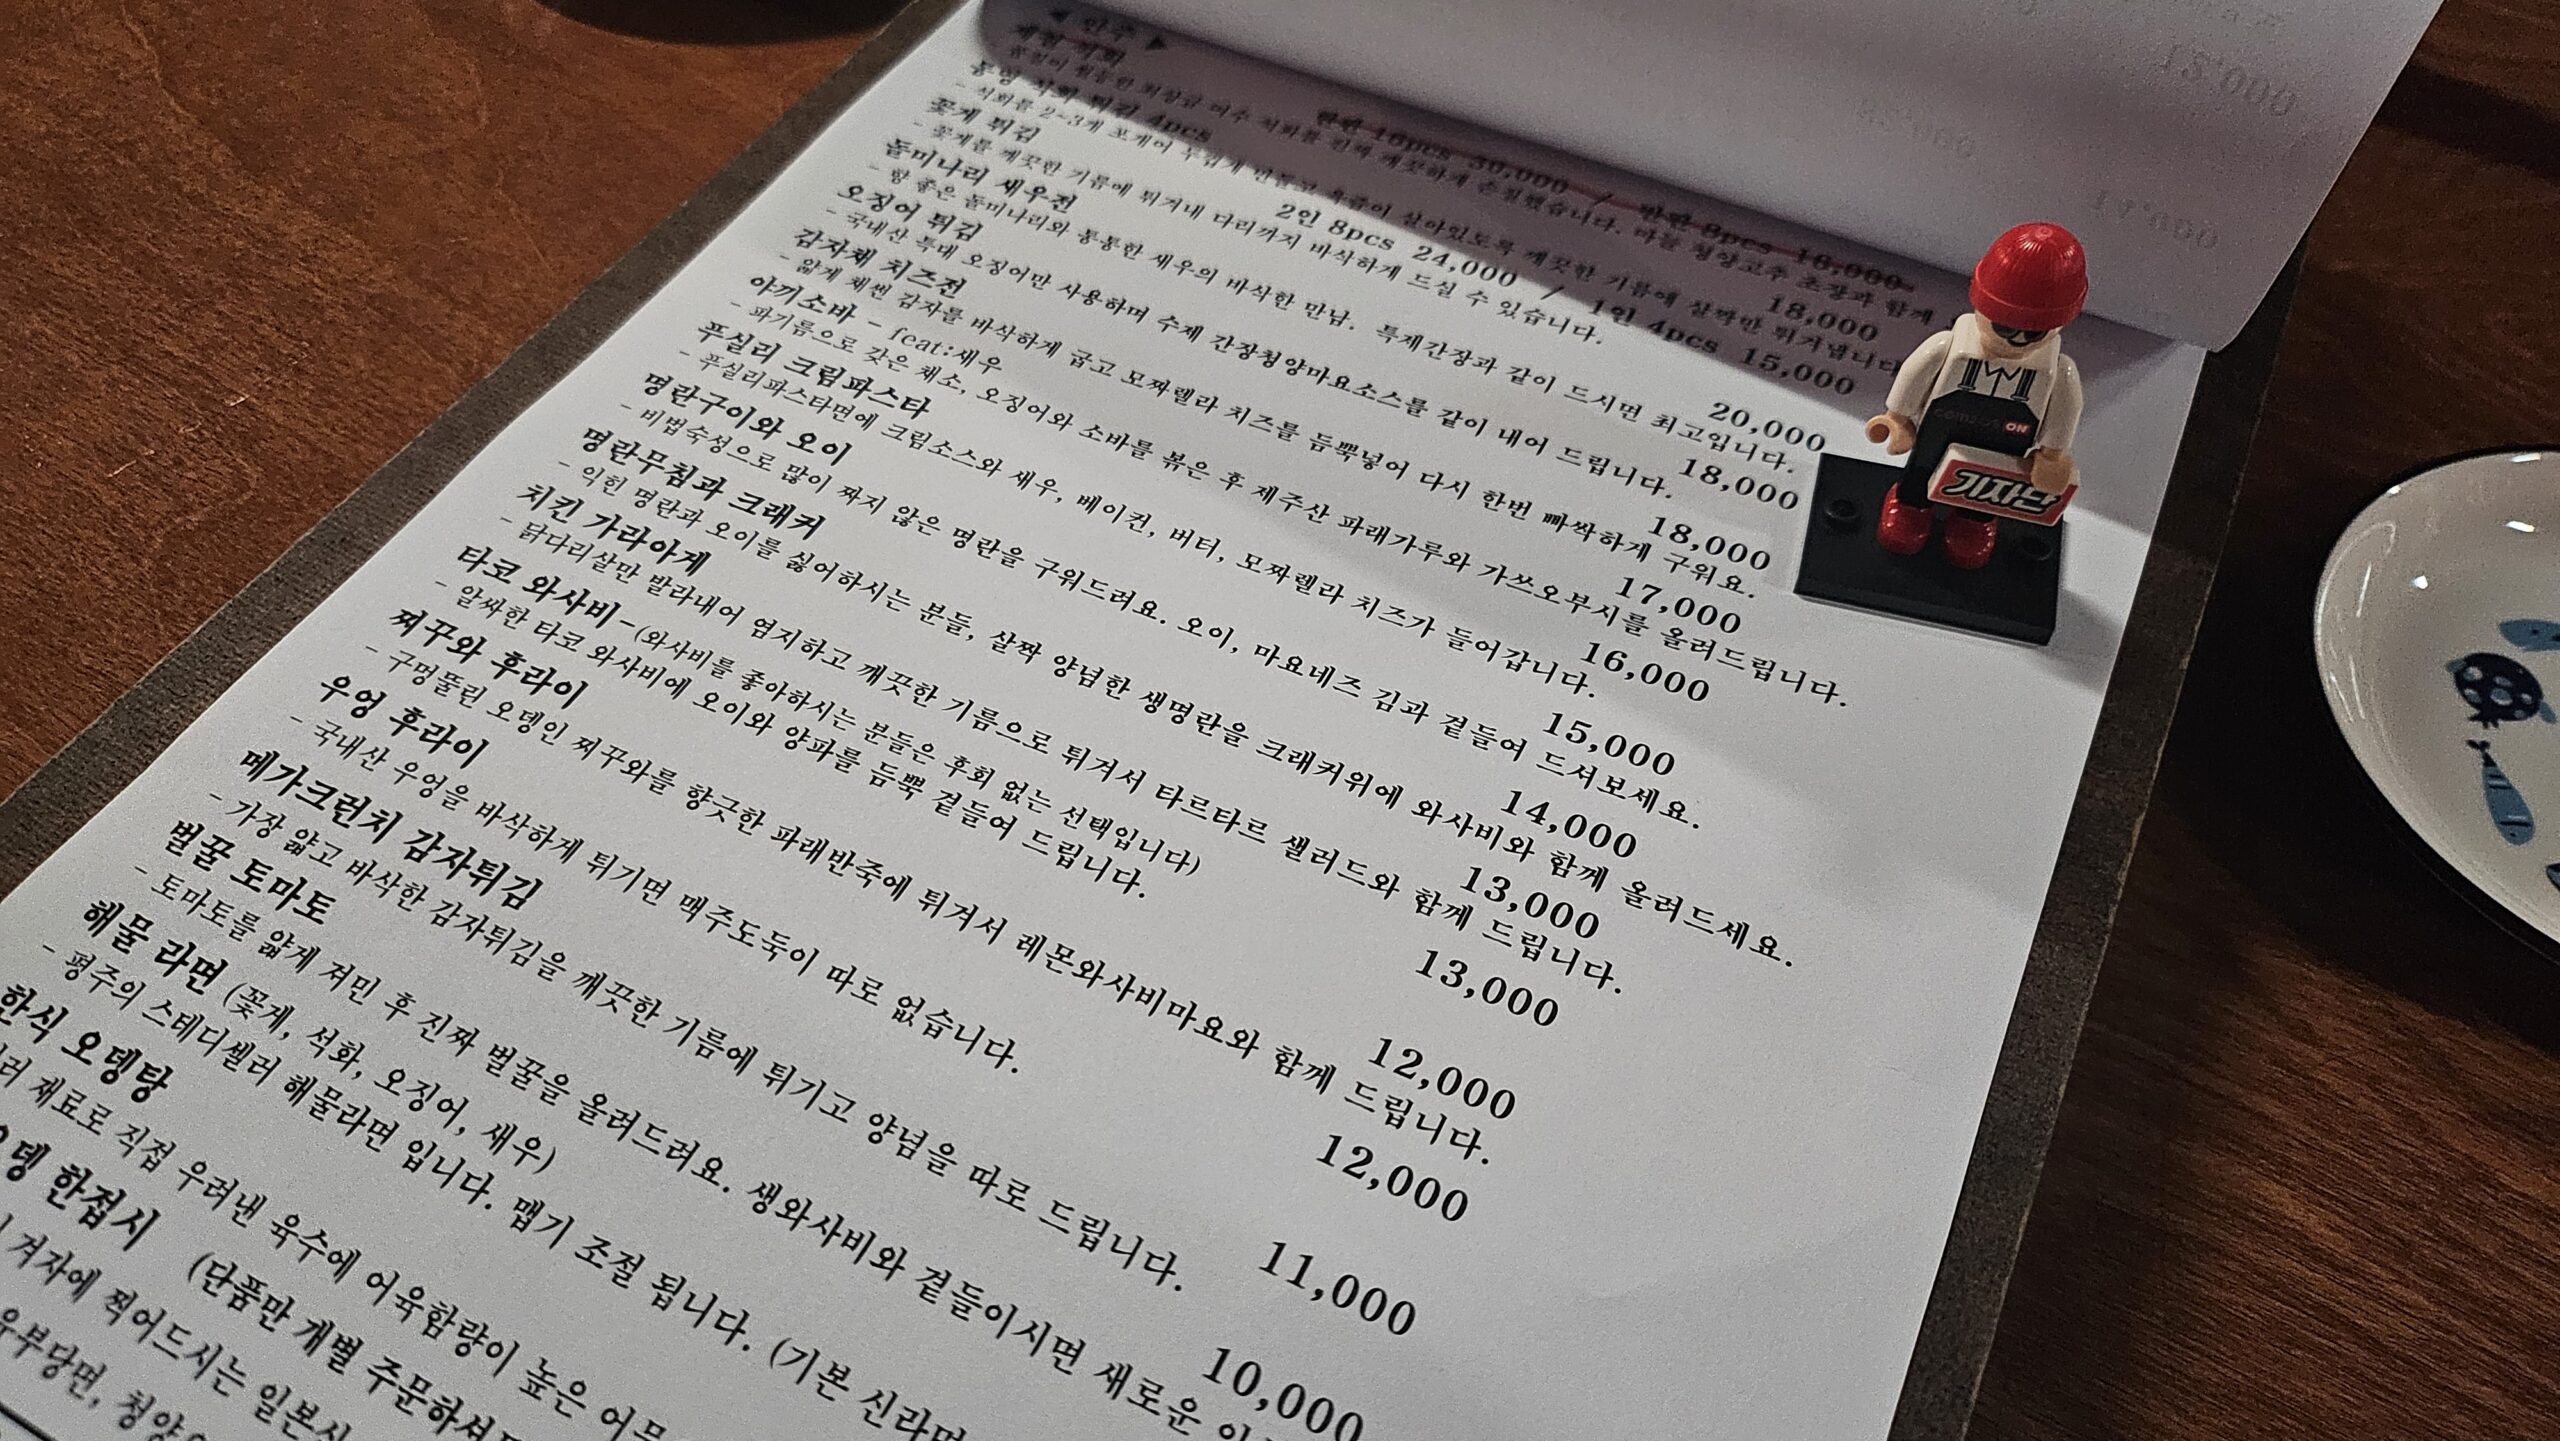 ◀ 안주 ▶
제철 석화 한판 16pcs 30,000 / 반판 8pcs 16,000
마늘 청양고추 초장과 함께
통영 석화 튀김 4pcs 18,000
- 석화를 2~3개 포개어 두껍게 만들고 육즙이 살아있도록 깨끗한 기름에 살짝만 튀겨냅니다
꽃게 튀김 2인 8pcs 24,000 / 1인 4pcs 15,000
- 꽃게를 깨끗한 기름에 튀겨내 다리까지 바삭하게 드실 수 있습니다.
돌미나리 새우전 20,000
- 향 좋은 돌미나리와 통통한 새우의 바삭한 만남. 특제간장과 같이 드시면 최고입니다.
오징어 튀김 18,000
- 국내산 특대 오징어만 사용하며 수제 간장청양마요소스를 같이 내어 드립니다.
감자채 치즈전 18,000
- 얇게 채썬 감자를 바삭하게 굽고 모짜렐라 치즈를 듬뿍넣어 다시 한번 빠싹하게 구워요.
야끼소바 - feat:새우 17,000
- 파기름으로 갖은 채소, 오징어와 소바를 볶은 후 제주산 파래가루와 가쓰오부시를 올려드립니다.
푸실리 크림파스타 16,000
- 푸실리파스타면에 크림소스와 새우, 베이컨, 버터, 모짜렐라 치즈가 들어갑니다.
명란구이와 오이 15,000
- 비법숙성으로 많이 짜지 않은 명란을 구워드려요. 오이, 마요네즈 김과 곁들여 드셔보세요.
명란무침과 크래커 14,000
- 익힌 명란과 오이를 싫어하시는 분들, 살짝 양념한 생명란을 크래커위에 와사비와 함께 올려드세요.
치킨 가라아게 13,000
- 닭다리살만 발라내어 염지하고 깨끗한 기름으로 튀겨서 타르타르 샐러드와 함께 드립니다.
타코 와사비-(와사비를 좋아하시는 분들은 후회 없는 선택입니다) 13,000
- 알싸한 타코 와사비에 오이와 양파를 듬뿍 곁들여 드립니다.
찌꾸와 후라이 12,000
- 구멍뚫린 오뎅인 찌꾸와를 향긋한 파래반죽에 튀겨서 레몬와사비마요와 함께 드립니다.
우엉 후라이 12,000
- 국내산 우엉을 바삭하게 튀기면 맥주도둑이 따로 없습니다.
메가크런치 감자튀김 11,000
- 가장 얇고 바삭한 감자튀김을 깨끗한 기름에 튀기고 양념을 따로 드립니다.
벌꿀 토마토 10,000
- 토마토를 얇게 져민 후 진짜 벌꿀을 올려드려요. 생와사비와 곁들이시면 새로운
해물 라면 (꽃게, 석화, 오징어, 새우)
- 평주의 스테디셀러 해물라면 입니다. 맵기 조절 됩니다. (기본 신라면
한식 오뎅탕
재료로 직접 우려낸 육수에 어육함량이 높은 어묵
오뎅 한접시 (단품만 개별 주문하셔
겨자에 찍어드시는 일본식
유부당면, 청양
15,000
14,000
comeup ON
기자단